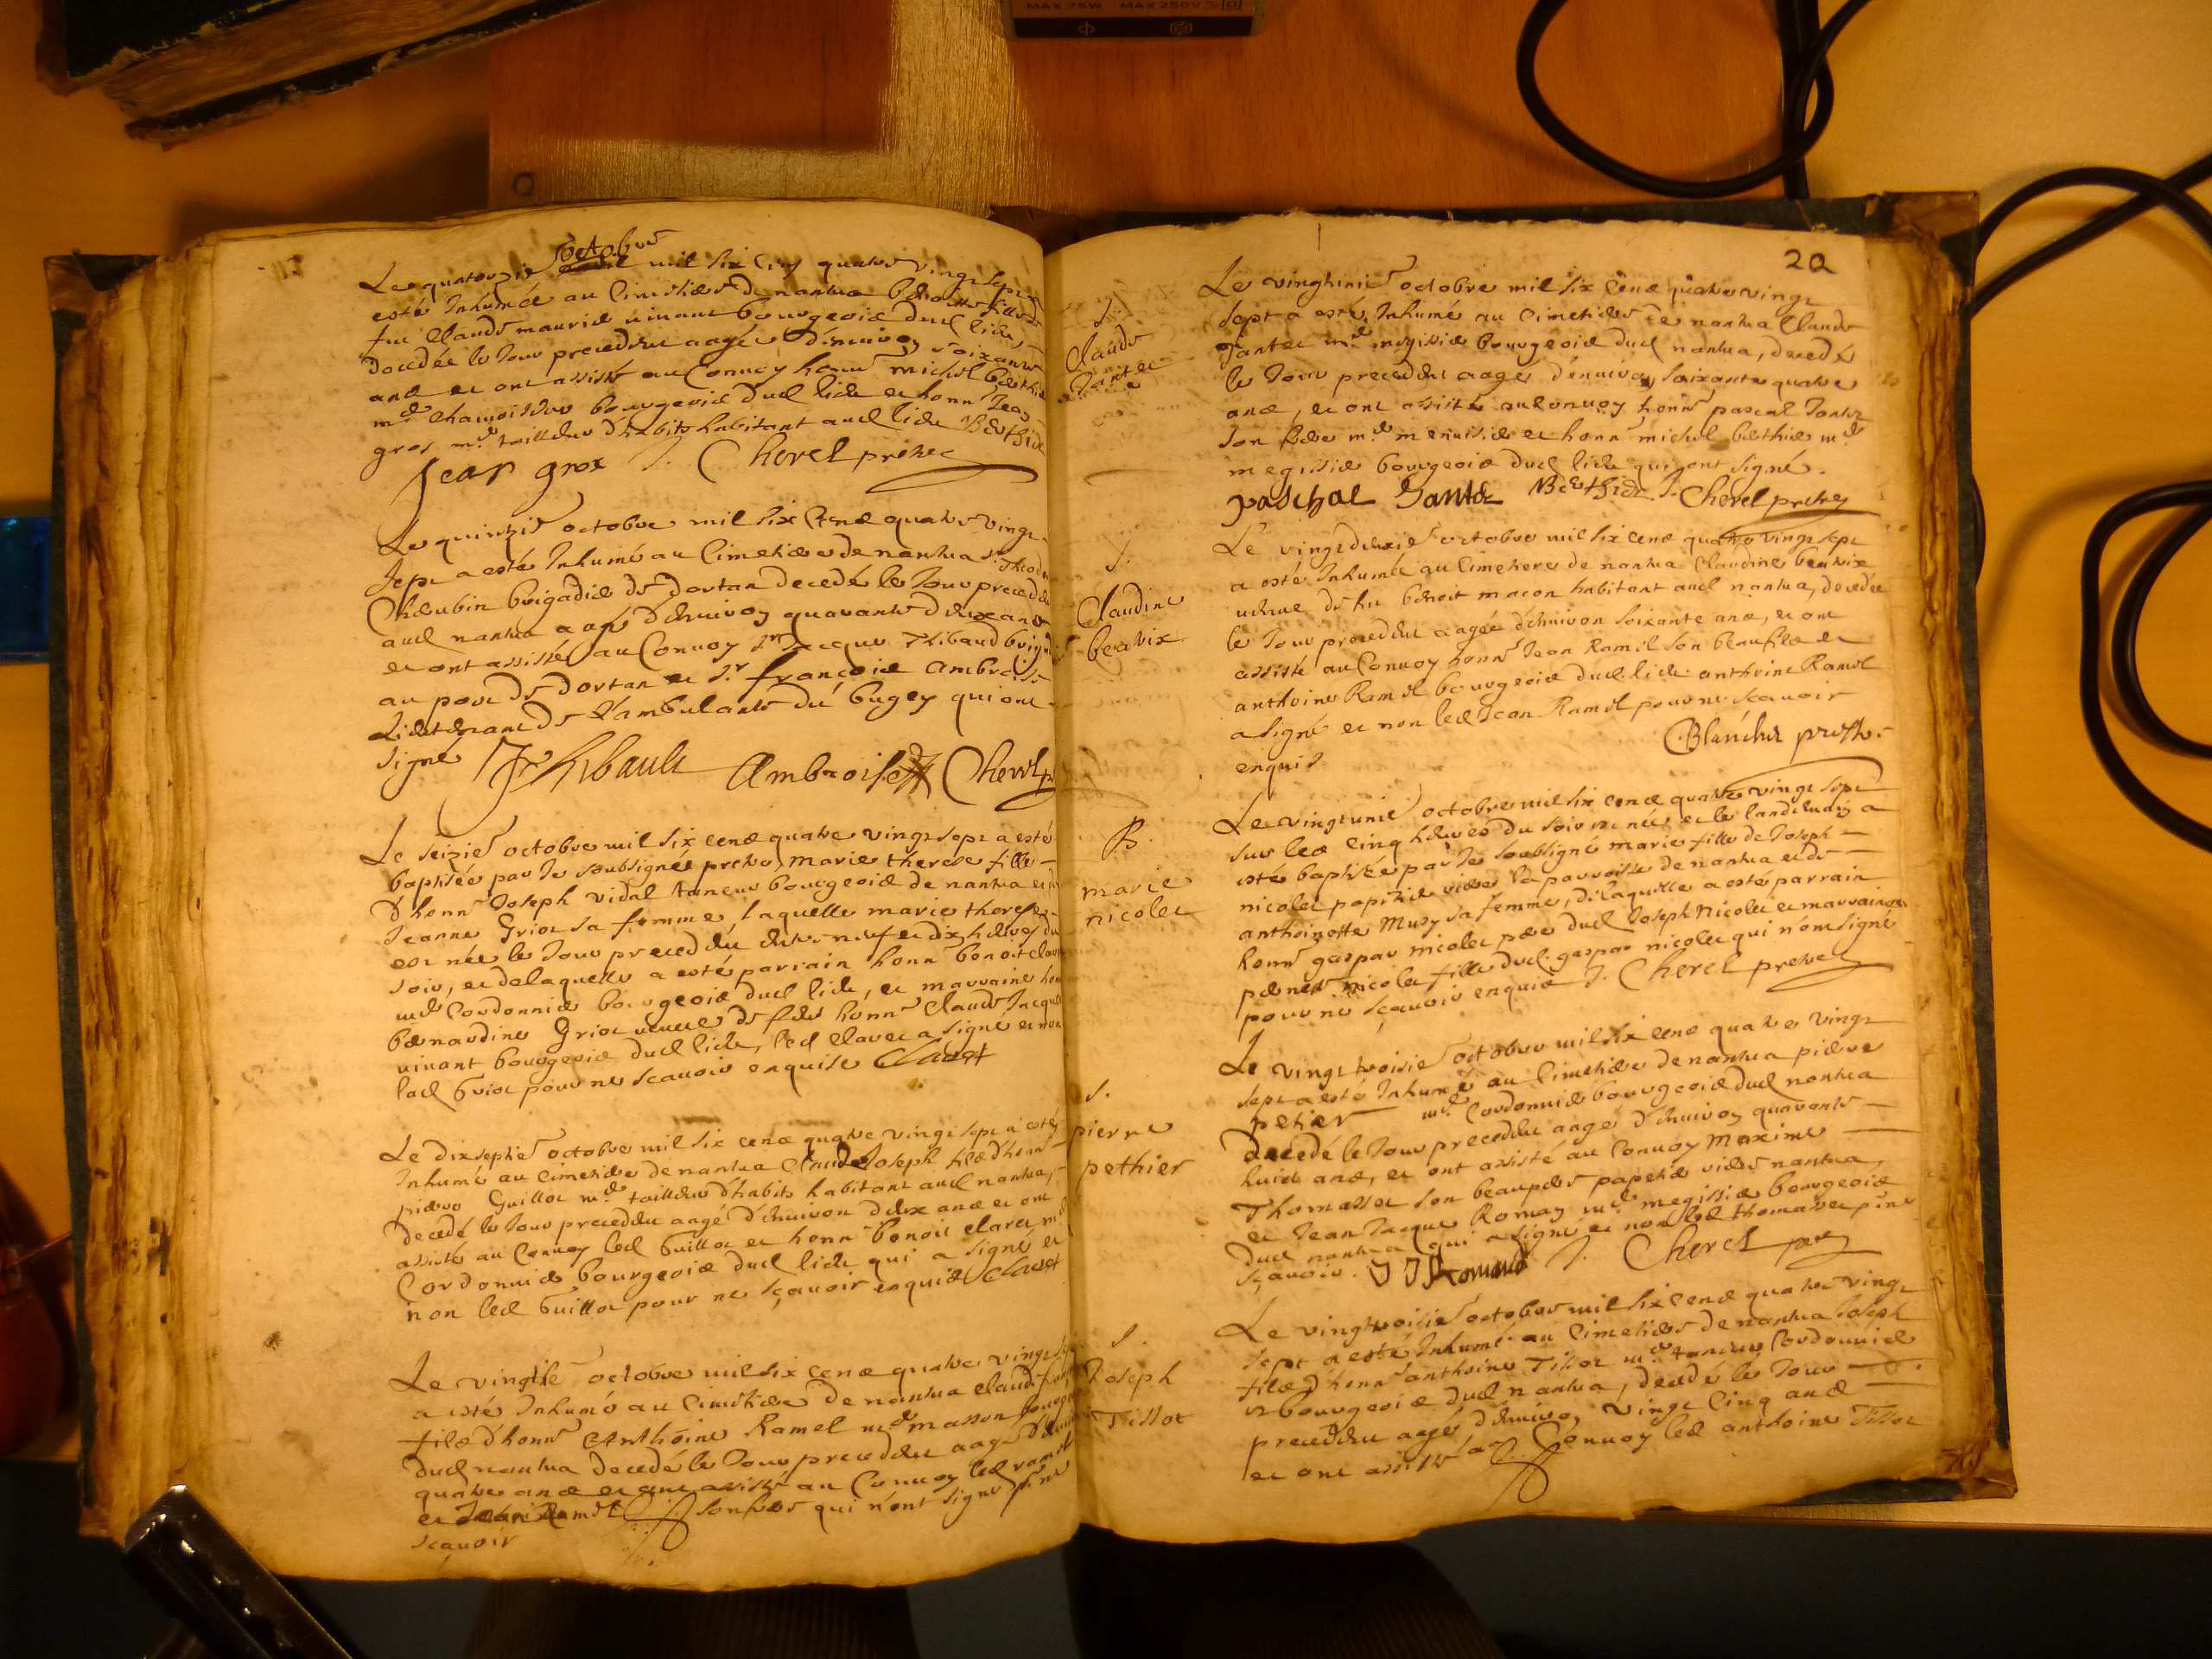 MAX 75W MAX 250V
octobre
Le quatorzie avril mil six cens quatre vingt sept a
esté Inhumée au Cimetiere de nantua benoitte fille de
feu Claude maurie vivant bourgeois dud lieu,
decedée le Jour precedent aagée d'environ soixante
ans et ont assisté au Convoy honn michel berthie
md chamoiseur bourgeois dud lieu et honn Jean
gros md tailleur d'habits habitant aud lieu Berthie
Jean grox J. Cherel prestre
Le quinzie octobre mil six Cens quatre vingt
sept a esté Inhumé au Cimetiere de nantua sr
Cherubin brigadie de dortan decedé le Jour preceden
aud nantua aagé d'environ quarante deux ans
et ont assisté au Convoy sr Jacque Thibaud
au poste de dortan et sr françois ambroise
Lieutenant de L'ambulante du bugey qui ont
signé Thibault Ambroise Cherel
Le seizie octobre mil six cens quatre vingt sept a esté
baptisée par Je soubsignée prestre, marie therese fille
d'honn Joseph vidal tanneur bourgeois de nantua et de
Jeanne Griot sa femme, laquelle marie therese
est née le Jour precedent entre neuf et dix heures du
soir, et delaquelle a esté parrain honn benoit claret
md Cordonnie bourgeois dud lieu, et marraine hon
bernardine Griot veuve de feu honn Claude Jacque
vivant bourgeois dud lieu, led claret a signé et non
lad Griot pour ne scavoir enquise Claret
Le dixseptie octobre mil six cens quatre vingt sept a esté
Inhumé au cimetiere de nantua Claude Joseph fils d'honn
pierre Guillot md tailleur d'habits habitant aud nantua,
decedé le Jour precedent aagé d'environ deux ans et ont
assisté au Convoy led Guillot et honn benoit claret md
Cordonnie bourgeois dud lieu qui a signé et
non led Guillot pour ne sçavoir enquis Claret
Le vingtie octobre mil six cens quatre vingt
a esté Inhumé au Cimetiere de nantua claude
fils d'honn Anthoine Ramel md masson bourgeois
dud nantua decedé le Jour precedent aagé d'environ
quatre ans et ont assisté au Convoy led ramel
et Jean Ramel son frere qui n'ont signé p ne
scavoir
20
S.
Claude
Jantet
Le vingtunie octobre mil six Cens quatre vingt
sept a esté Inhumé au Cimetiere de nantua Claude
Jantet md megissie bourgeois dud nantua, decedé
le Jour precedent aagé d'environ soixante quatre
ans, et ont assisté au Convoy honn pascal Jantet
son frere md menuisie et honn michel berthie md
megissie bourgeois dud lieu qui ont signé.
paschal Jantet Berthie J. Cherel prestre
S.
Claudine
beatrix
Le vingtdeuxie octobre mil six cens quatre vingt sept
a esté Inhumée au Cimetiere de nantua Claudine beatrix
veuve de feu benoit macon habitant aud nantua, decedée
le Jour precedent aagée d'environ soixante ans, et ont
assisté au Convoy honn Jean Ramel son beaufils et
anthoine Ramel bourgeois dud lieu anthoine Ramel
a signé et non led Jean Ramel pour ne scavoir
enquis
Blanchet prestre
B.
marie
nicolet
Le vingtunie octobre mil six cens quatre vingt sept
sur les cinq heures du soir est née et le landemain a
esté baptisée par Je soubsigné marie fille de Joseph
nicolet papetie rière la parroisse de nantua et de
anthoinette Musy sa femme, de laquelle a esté parrain
honn gaspar nicolet pere dud Joseph Nicolet et marraine
pernette nicolet fille dud gaspar nicolet qui n'ont signé
pour ne sçavoir enquis J. Cherel prestre
S.
pierre
pethier
Le vingttroisie octobre mil six cens quatre vingt
sept a esté Inhumé au Cimetiere de nantua pierre
pethier md Cordonnie bourgeois dud nantua
decedé le Jour precedent aagé d'environ quarante
huict ans, et ont assisté au Convoy Maxime
Thomasset son beaupere papetie rière nantua,
et Jean Jacque Roman md megissie bourgeois
dud nantua qui a signé et non led thomasset p ne
sçavoir. J J Romand J. Cherel pre
S.
Joseph
Tissot
Le vingttroisie octobre mil six cens quatre vingt
sept a esté Inhumé au Cimetiere de nantua Joseph
fils d'honn anthoine Tissot md tanneur Cordonnie
et bourgeois dud nantua, decedé le Jour
precedent aagé d'environ vingt cinq ans
et ont assisté au Convoy led anthoine Tissot